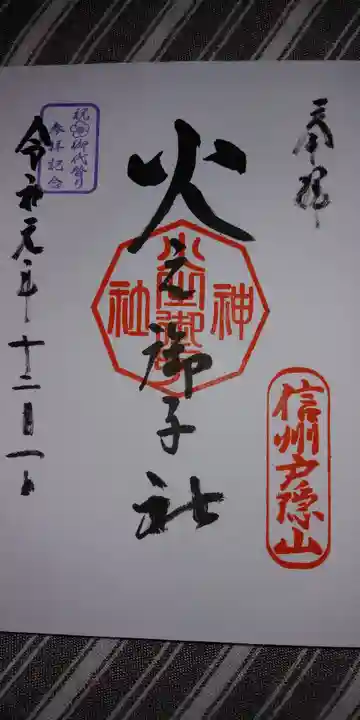 奉拝
信州戸隠山
火之御子社
火之御子
神社
祝御代替り
参拝記念
令和元年十二月一日